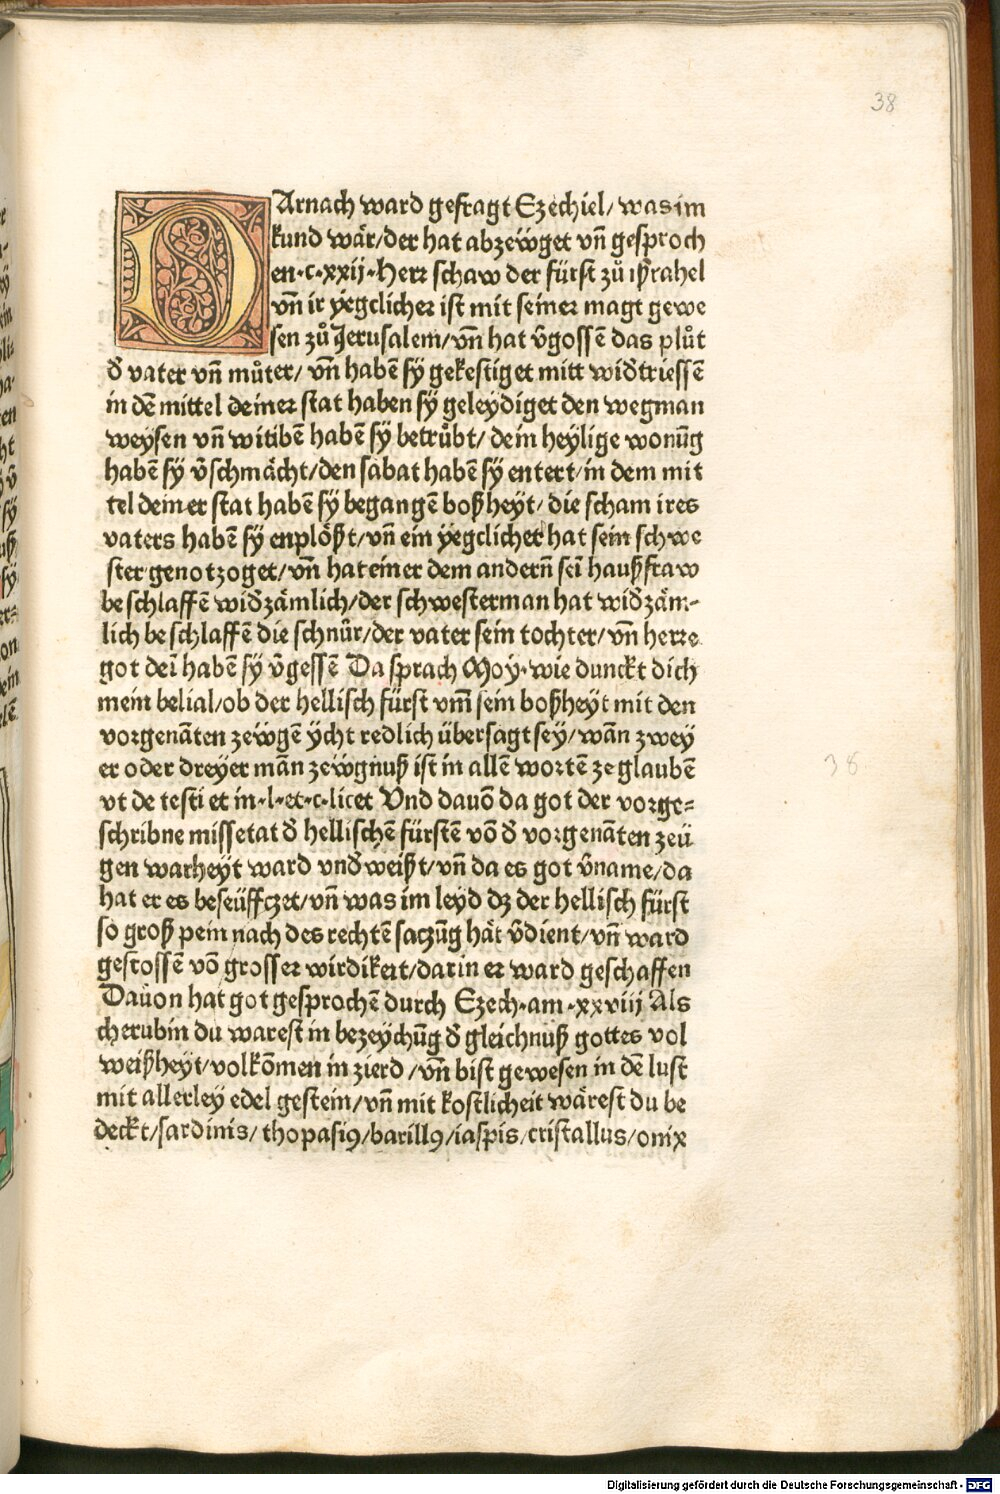 38
DArnach ward gefragt Ezechiel/ was im
kund wär/der hat abzeẅget vn̄ gesproch
en·c·xxij·Herr schaw der fürst zů iſzrahel
vn̄ ir yegclicher ist mit seiner magt gewe
sen zů Jerusalem/vn̄ hat v̄gossē das plůt
d̄ vater vn̄ můter/ vn̄ habē sÿ gekestiget mitt wid̄triessē
in dē mittel deiner stat haben sÿ geleydiget den wegman
weysen vn̄ witibē habē sÿ betrůbt/ dein heylige wonūg
habē sÿ v̄schmächt/den sabat habē sÿ entert/in dem mit
tel deiner stat haben sÿ begangē boßheyt/ die scham ires
vaters habē sÿ enplößt/vn̄ ein yegclicher hat sein schwe
ster genotzoget/vn̄ hat einer dem andern̄ seī haußfraw
beschlaffē wid̄zämlich/der schwesterman hat wid̄zäm-
lich beschlaffē die schnůr/der vater sein tochter/vn̄ herre
got deī habē sÿ v̄gessē Da sprach Moy·wie dunckt dich
mein belial/ob der hellisch fürst vm̄ sein boßheyt mit den
vorgenāten zeẅgē ycht redlich übersagt sey/wān zwey
er oder dreyer mān zeẅgnuß ist in allē wortē ze glaubē
vt de testi et in·l·et·c·licet Vnd dauō da got der vorge=
schribne missetat d̄ hellischē fürstē vō d̄ vorgenāten zeü
gen warheyt ward vnd̄weißt/vn̄ da es got v̄name/da
hat er es beseüffczet/vn̄ was im leyd dz der hellisch fürst
so groß pein nach des rechtē saczūg hät v̄dient/vn̄ ward
gestossē vō grosser wirdikeit/darin er ward geschaffen
Dauon hat got gesprochē durch Ezech·am·xxviij Als
cherubin du warest in bezeychūg d̄ gleichnuß gottes vol
weißheyt/volkōmen in zierd /vn̄ bist gewesen in dē lust
mit allerley edel gestein/vn̄ mit kostlicheit wärest du be
deckt/sardinis/thopasiꝰ/barillꝰ/iaspis/cristallus/onix
38.
Digitalisierung gefördert durch die Deutsche Forschungsgemeinschaft - DFG